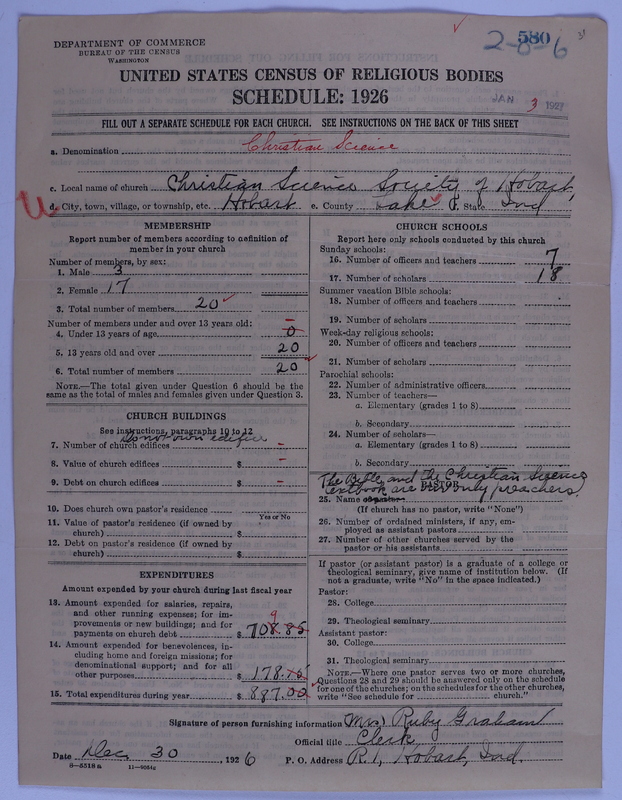 580
2-8-6
DEPARTMENT OF COMMERCE
BUREAU OF THE CENSUS
WASHINGTON
UNITED STATES CENSUS OF RELIGIOUS BODIES
SCHEDULE: 1926
JAN 3 1927
FILL OUT A SEPARATE SCHEDULE FOR EACH CHURCH. SEE INSTRUCTIONS ON THE BACK OF THIS SHEET
a. Denomination Christian Science
c. Local name of church Christian Science Society of Hobart,
d. City, town, village, or township, etc. Hobart e. County Lake f. State Ind
MEMBERSHIP
Report number of members according to definition of
member in your church
Number of members, by sex:
1. Male 3
2. Female 17
3. Total number of members 20
Number of members under and over 13 years old:
4. Under 13 years of age 0
5. 13 years old and over 20
6. Total number of members 20
NOTE.—The total given under Question 6 should be the
same as the total of males and females given under Question 3.
CHURCH BUILDINGS
See instructions, paragraphs 10 to 12
Do not own edifice
7. Number of church edifices -
8. Value of church edifices $ -
9. Debt on church edifices $ -
10. Does church own pastor's residence
Yes or No
11. Value of pastor's residence (if owned by
church) $
12. Debt on pastor's residence (if owned by
church) $
EXPENDITURES
Amount expended by your church during last fiscal year
13. Amount expended for salaries, repairs,
and other running expenses; for im-
provements or new buildings; and for
payments on church debt $ 708.85
9
14. Amount expended for benevolences, in-
cluding home and foreign missions; for
denominational support; and for all
other purposes $ 178.15
15. Total expenditures during year $ 887.00
CHURCH SCHOOLS
Report here only schools conducted by this church
Sunday schools:
16. Number of officers and teachers 7
17. Number of scholars 18
Summer vacation Bible schools:
18. Number of officers and teachers
19. Number of scholars
Week-day religious schools:
20. Number of officers and teachers
21. Number of scholars
Parochial schools:
22. Number of administrative officers
23. Number of teachers—
a. Elementary (grades 1 to 8)
b. Secondary
24. Number of scholars—
a. Elementary (grades 1 to 8)
b. Secondary
The Bible and the Christian Science
textbook are our only preachers.
PASTOR
25. Name
(If church has no pastor, write "None")
26. Number of ordained ministers, if any, em-
ployed as assistant pastors
27. Number of other churches served by the
pastor or his assistants
If pastor (or assistant pastor) is a graduate of a college or
theological seminary, give name of institution below. (If
not a graduate, write "No" in the space indicated.)
Pastor:
28. College
29. Theological seminary
Assistant pastor:
30. College
31. Theological seminary
NOTE.—Where one pastor serves two or more churches,
Questions 28 and 29 should be answered only on the schedule
for one of the churches; on the schedules for the other churches,
write "See schedule for church."
Signature of person furnishing information Mrs Ruby Graham
Official title Clerk
Date Dec. 30, 1926 P. O. Address R. 1, Hobart, Ind.
8-5518 a